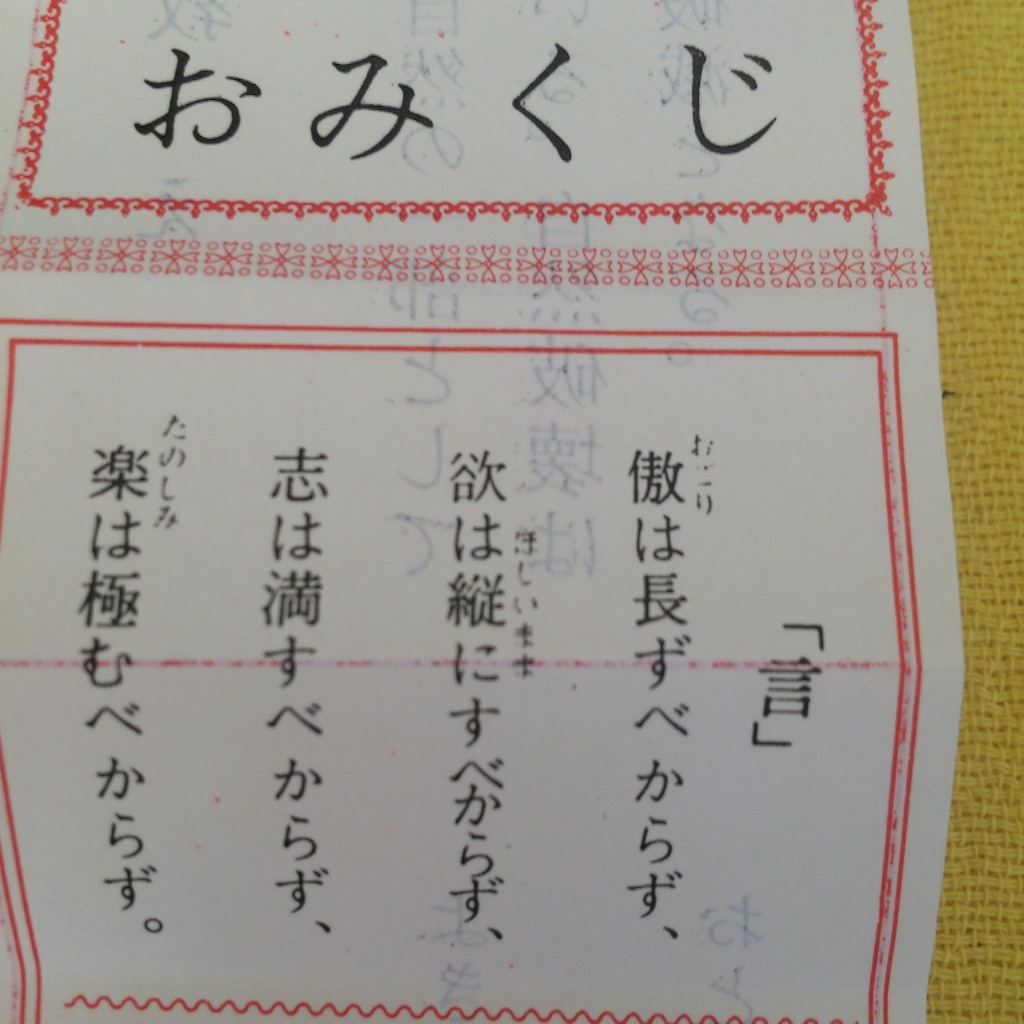 おみくじ
「言」
傲は長ずべからず、
おごり
欲は縦にすべからず、
ほしいまま
志は満すべからず、
楽は極むべからず。
たのしみ